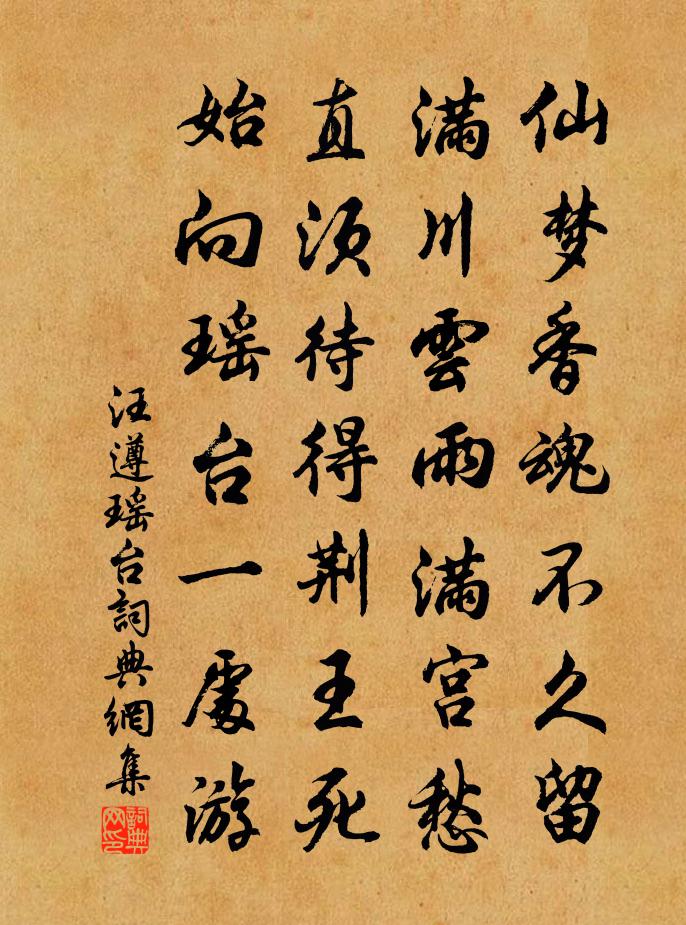 仙梦香魂不久留
满川雲雨满宫愁
直须待得荆王死
始向瑶台一處游
汪遵瑶台詞典網集
詞典網印